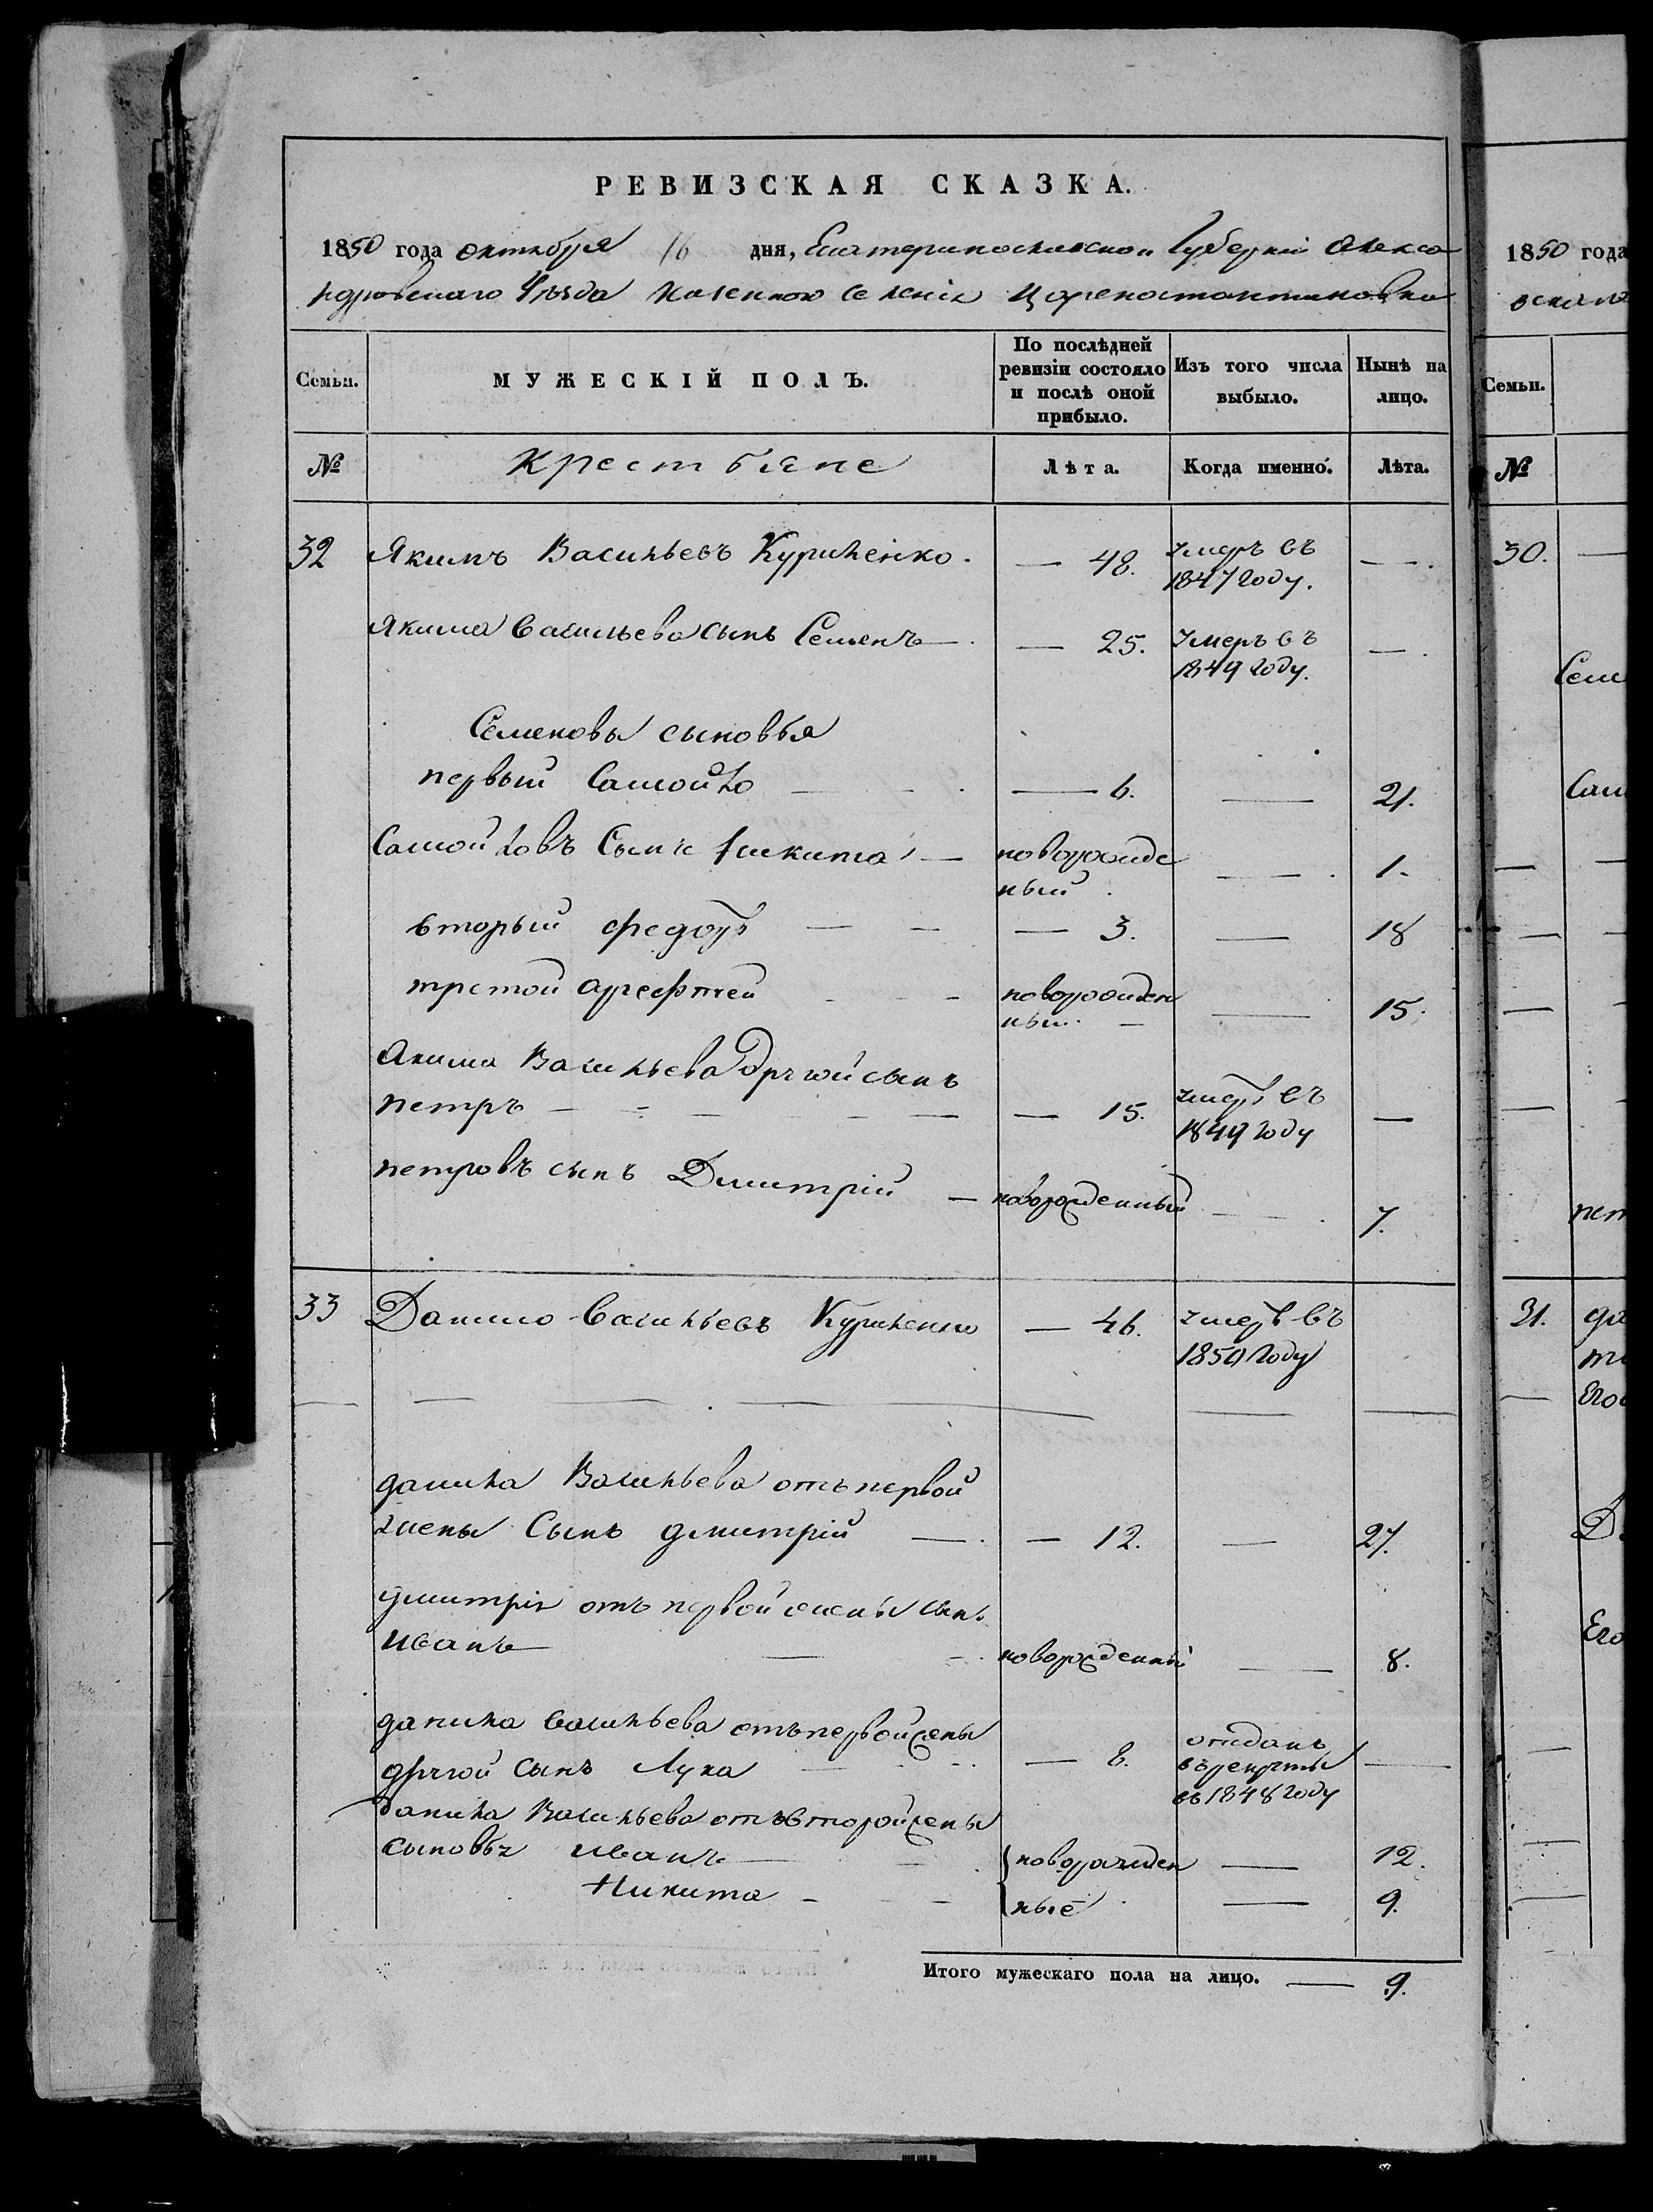 РЕВИЗСКАЯ СКАЗКА.
1850 года октября 16 дня, Екатеринославской Губерніи Алекса
ндровскаго Уѣзда Казенного Селенія Цареконстантиновка
Семьи.
МУЖЕСКІЙ ПОЛЪ.
По послѣдней
ревизіи состояло
и послѣ оной
прибыло.
Изъ того числа
выбыло.
Нынѣ на
лицо.
№ Крестьяне Лѣта. Когда именно. Лѣта.
32 Якимъ Васильевъ Куриленко. — 48. умеръ въ —
1847 году.
Якима Васильева сынъ Семенъ — 25. Умеръ въ —
1849 году.
Семеновы сыновья
первый Самойло — 6. — 21.
Самойловъ Сынъ Никита — новорожде — 1.
ный
вторый Федотъ — 3. — 18
третой — новорожден — 15.
ный —
Якима Васильева другой сынъ
петръ — 15. умеръ въ —
1849 году
петровъ сынъ Дмитрій — новорожденный — 7.
33 Данило Васильевъ Куриленко — 46. умеръ въ
1850 году
данила Васильева отъ первой
жены Сынъ дмитрій — 12. — 27.
дмитрія отъ первой жены сынъ
Иванъ — новорожденный — 8.
данила Васильева отъ первой жены
другой сынъ Лука — 8. отданъ —
въ рекруты
въ 1848 году
данила Васильева отъ второй жены
сыновья Иванъ — новорожден — 12.
Никита — ные — 9.
Итого мужескаго пола на лицо. — 9.
1850 года
Семьи.
№
30. —
Сем
Сам
пет
31. да
Его
Д
Его